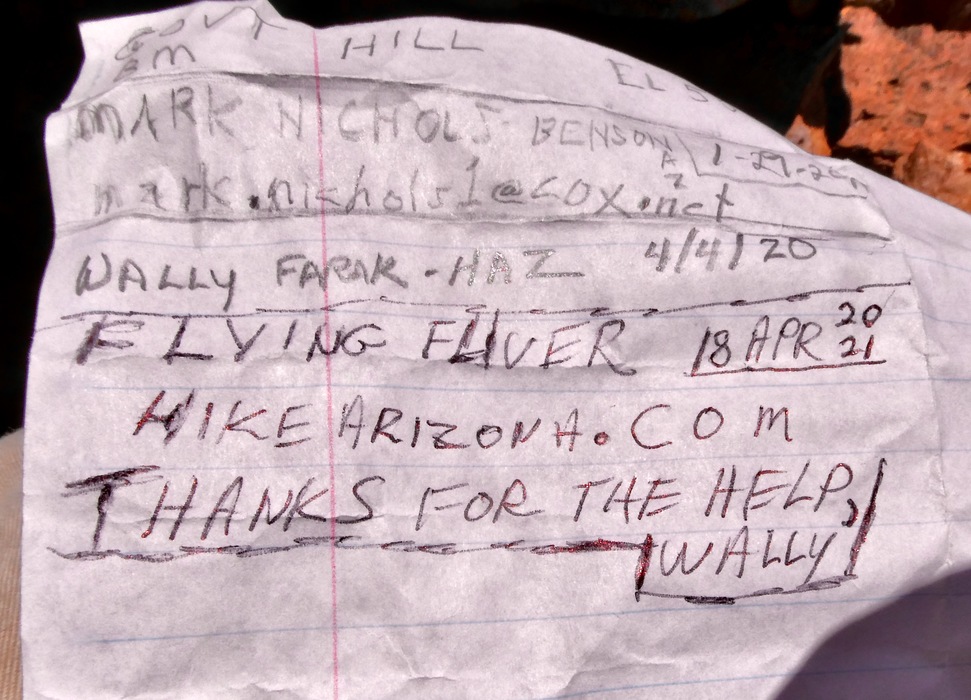 GOVT HILL
MARK NICHOLS - BENSON AZ 1-29-20
mark.nichols1@cox.net
WALLY FARAK - HAZ 4/4/20
FLYING FLIVER 18 APR 2021
HIKEARIZONA.COM
THANKS FOR THE HELP,
WALLY